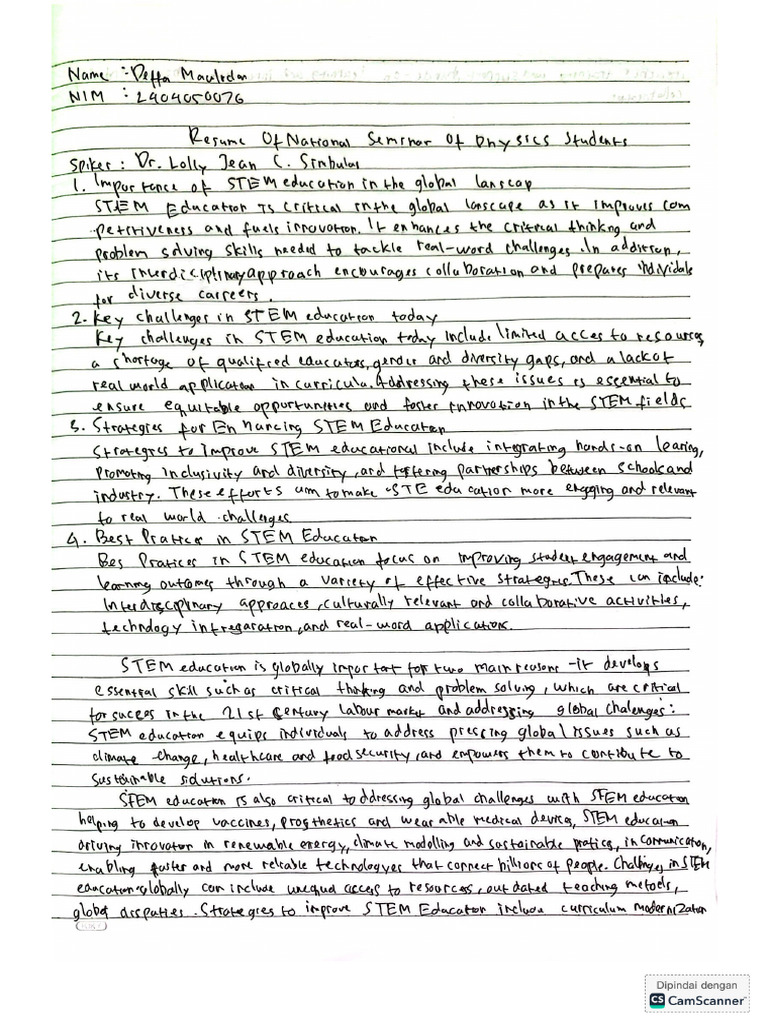 Name : Deffa Mauladan
NIM : 2404050076
Resume Of National Seminar Of Physics Students
Spiker : Dr. Lolly Jean C. Simbulas
1. Importance of STEM education in the global lanscap
STEM Education Is Critical in the global lanscape as it improves com
petitiveness and fuels innovation. It enhances the critical thinking and
problem solving skills needed to tackle real-word challenges. In addition,
its interdiciplinary approach encourages collaboration and prepares individals
for diverse careers.
2. Key challenges in STEM education today
Key challenges in STEM education today include limited acces to resources,
a shortage of qualified educators, gender and diversity gaps, and a lack of
real world application in curricula. Addressing these issues is essential to
ensure equitable opportunities and foster innovation in the STEM fields
3. Strategies for Enhancing STEM Education
Strategies to improve STEM educational include integrating hands-on learing,
Promoting inclusivity and diversity, and fostering partnerships between schools and
industry. These efforts aim to make STE education more engaging and relevant
to real world challenges.
4. Best Pratices in STEM Education
Bes Pratices in STEM education focus on improving student engagement and
learning outcomes through a variety of effective strategies. These can include:
Interdisciplinary approaces, culturally relevant and collaborative activities,
technology integaration, and real-word applications.
STEM education is globally important for two main reasons - it develops
essential skill such as critical thinking and problem solving, which are critical
for success in the 21st Century labour market and addressing global chalenges:
STEM education equips individuals to address pressing global issues such as
climate change, healthcare and food security, and empowers them to contibute to
sustainable solutions.
STEM education is also critical to ddressing global challenges with STEM education
helping to develop vaccines, prosthetics and wearable medical device, STEM education
driving innovation in renewable energy, climate modelling and sustainable pratices, in communication,
enabling faster and more reliable technologyes that connect billions of people. Challenges in STEM
education globally can include unequal access to resources, outdated teaching metods,
global disputies. Strategies to improve STEM Education include curriculum modernization
Dipindai dengan
CS CamScanner